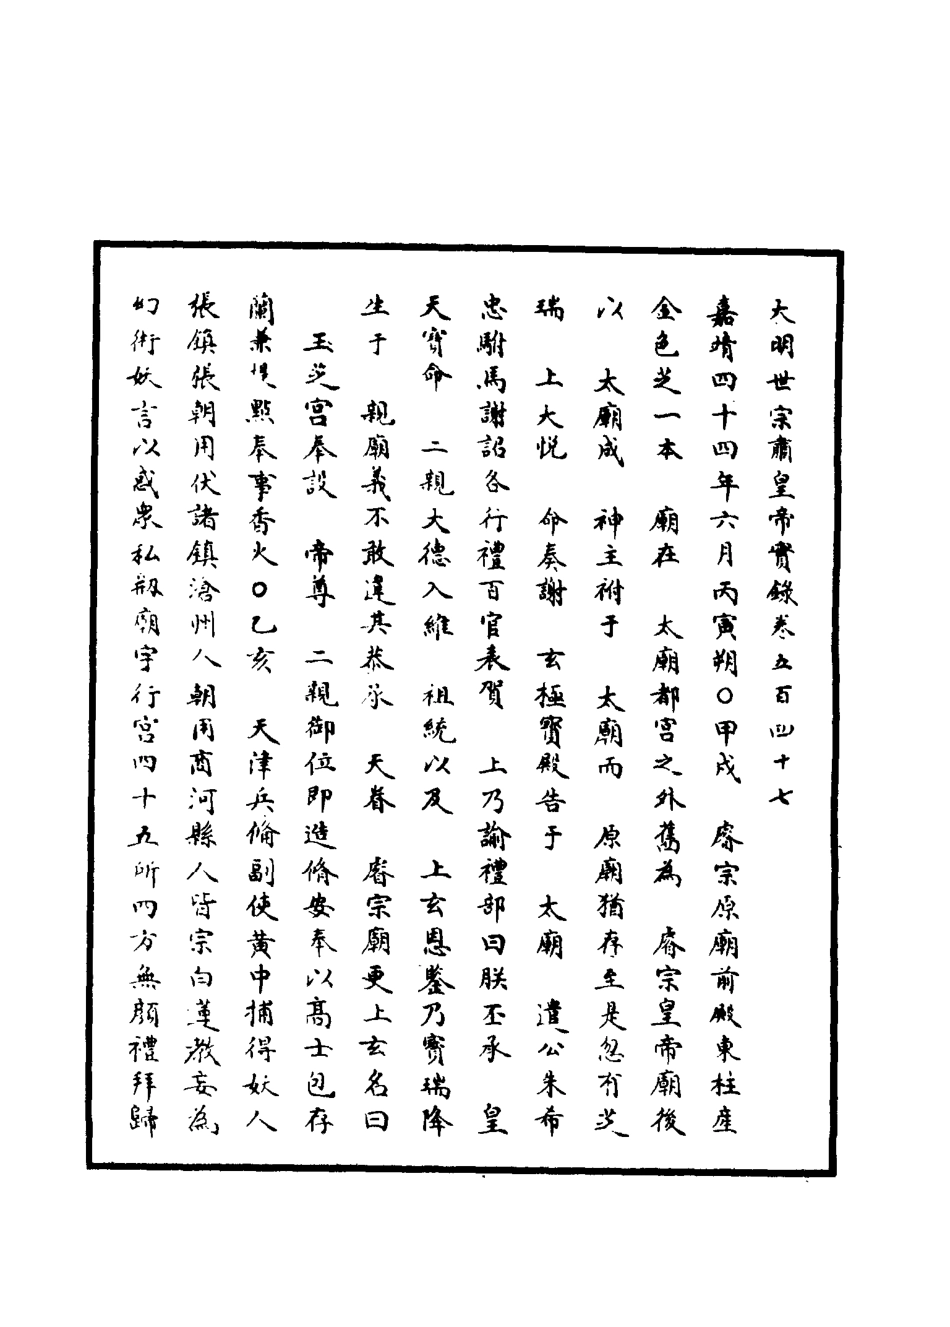 大明世宗肅皇帝實錄卷五百四十七
嘉靖四十四年六月丙寅朔○甲戌　睿宗原廟前殿東柱産
金色芝一本　廟在　太廟都宮之外舊為　睿宗皇帝廟後
以　太廟成　神主祔于　太廟而　原廟猶存至是忽有芝
瑞　上大悅　命奏謝　玄極寶殿告于　太廟　遣公朱希
忠駙馬謝詔各行禮百官表賀　上乃諭禮部曰朕丕承　皇
天寶命　二親大德入維　祖統以及　上玄恩鑒乃寶瑞降
生于　親廟義不敢違其恭承　天眷　睿宗廟更上玄名曰
玉芝宮奉設　帝尊　二親御位即造脩安奉以高士包存
蘭兼點奉事香火○乙亥　天津兵俻副使黄中捕得妖人
張鎮張朝用伏諸鎮滄州人朝用商河縣人皆宗白蓮教妄為
幻術妖言以惑衆私剏廟宇行宮四十五所四方無顔禮拜歸